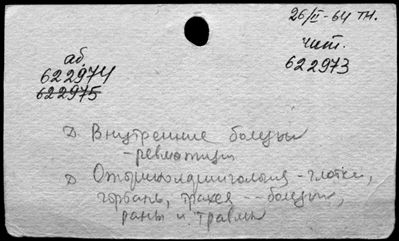 26/II-64 тн.
аб.
622974
622975
чит.
622973
Внутренние болезни
- ревматизм
Оториноларингология - глотки,
гортань, трахея -- болезни,
раны и травмы